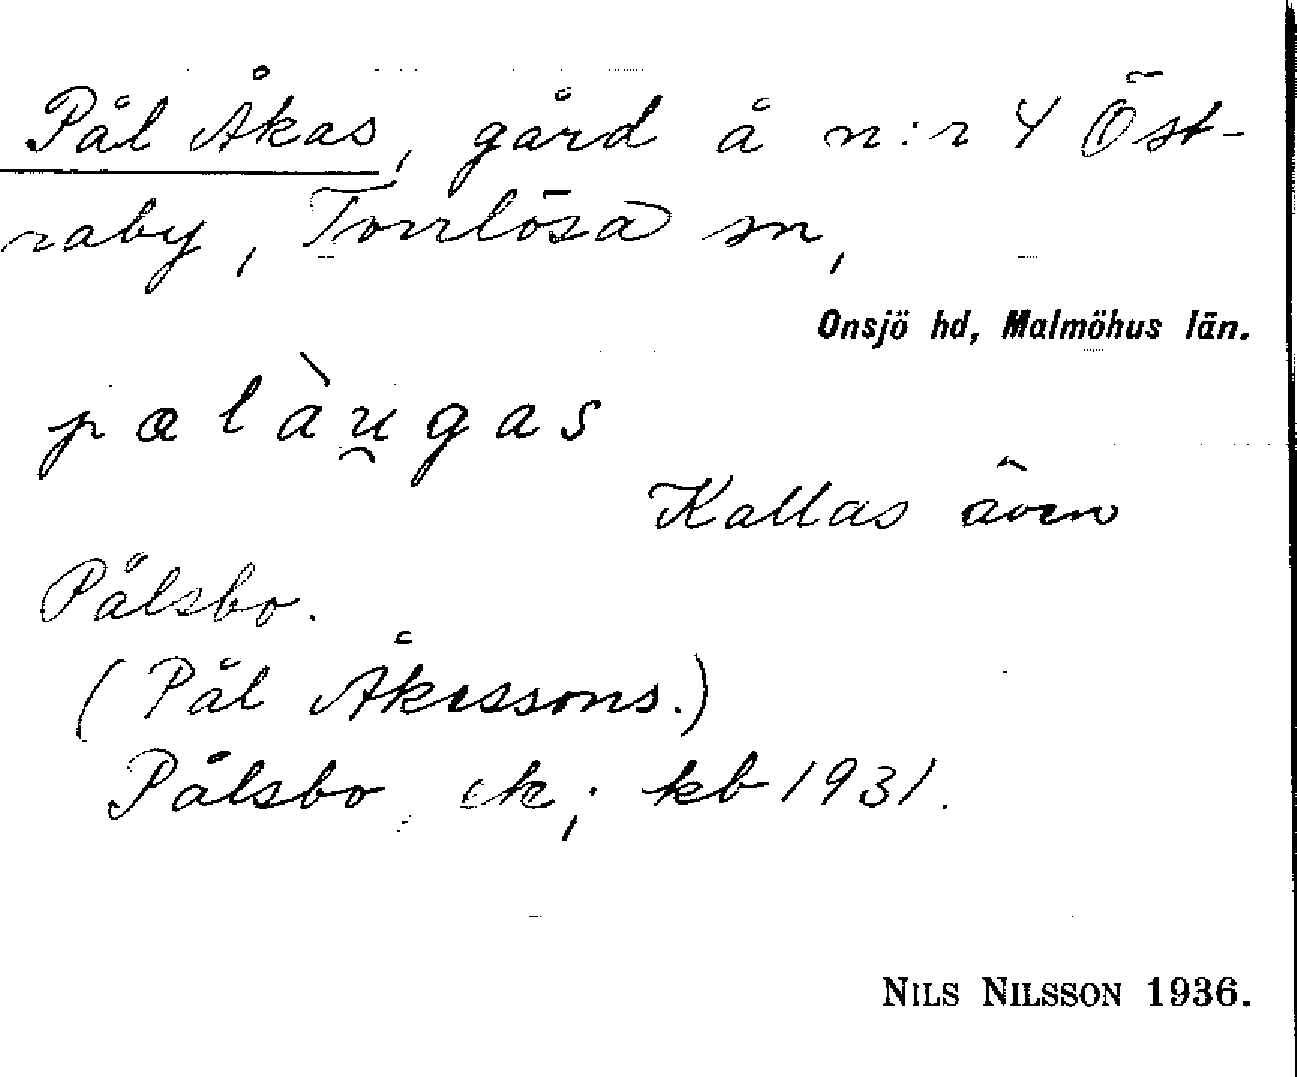 Pål Åkas, gård å n:r 4 Öst-
raby, Torrlösa sn,
Onsjö hd, Malmöhus län.
palàu̯gas
Kallas även
Pålsbo.
(Pål Åkessons.)
Pålsbo ek; kb 1931.
NILS NILSSON 1936.